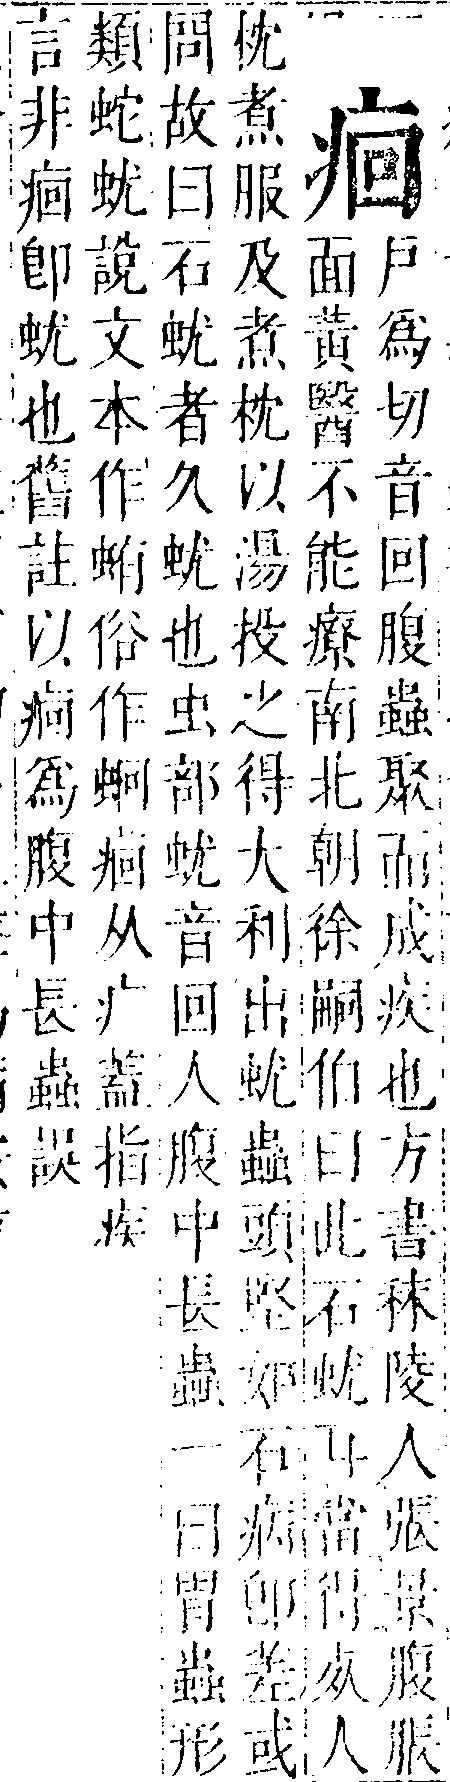 痐
戶爲切音回腹蟲聚而成疾也方書秣陵人張景腹脹
面黃醫不能療南北朝徐嗣伯曰此石蚘耳當得死人
枕煮服及煮枕以湯投之得大利出蚘蟲頭堅如石病卽差或
問故曰石蚘者久蚘也虫部蚘音回人腹中長蟲一曰胃蟲形
類蛇蚘說文本作蛕俗作蛔痐从疒蓋指疾
言非痐卽蚘也舊註以痐爲腹中長蟲誤